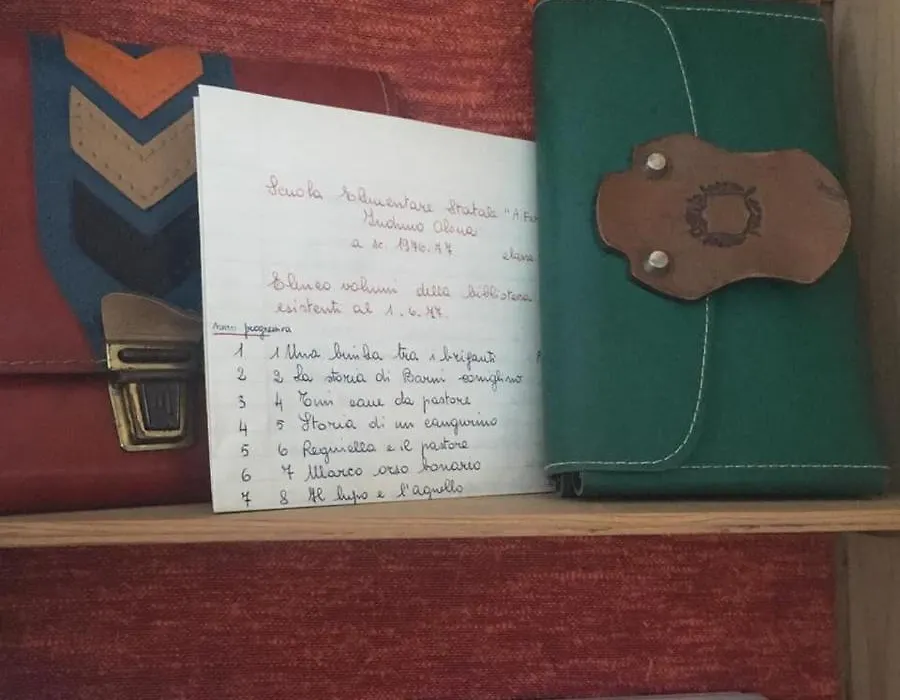 Scuola Elementare Statale "A.
Induno Olona
a sc. 1976.77 classe
Elenco volumi della biblioteca
esistenti al 1.6.77.
progressivo
1 1 Una bimba tra i briganti
2 2 La storia di Barni coniglino
3 4 Toni cane da pastore
4 5 Storia di un cangurino
5 6 Reginella e il pastore
6 7 Marco orso bonario
7 8 Il lupo e l'agnello